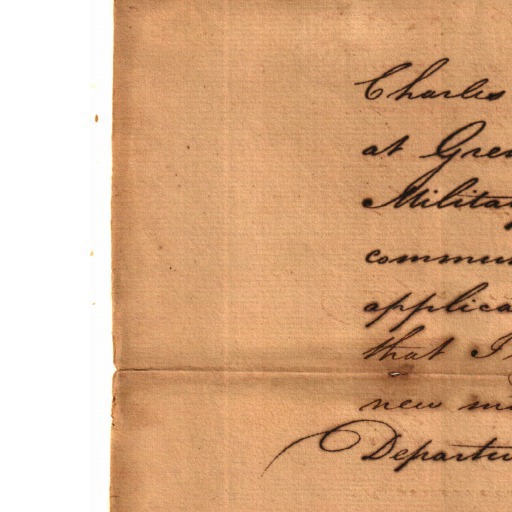 Charles
at Gren
Militar
commun
applica
that I
new m
Departu